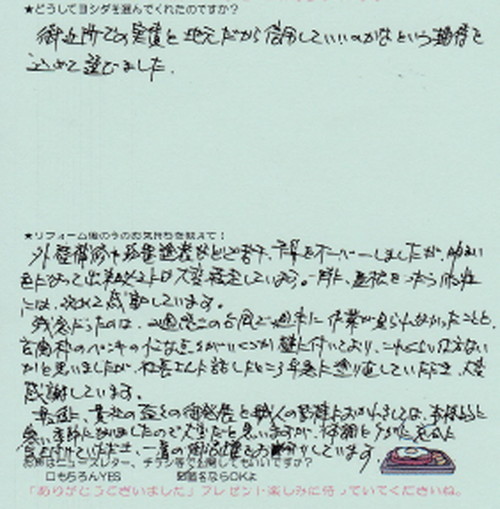 ★どうしてヨシダを選んでくれたのですか?
御近所での実績と地元だから信用していいのかなという期待を
込めて選びました。
★リフォーム後の今のお気持ちを教えて!
外壁補修や 塗装などで 予算をオーバーしましたが、明るい
色になって出来 大変満足しています。特に、
には、改めて感動しています。
残念だったのは、2週 の台風で週末に作業が見られなかったことと、
玄関枠のペンキの小さな がいくつか壁に付いており、これくらい仕方ない
かと思いましたが、社長さんに話したところ早急に塗り直していただき、大変
感謝しています。
最後に、貴社の益々の御発展と職人の皆様におかれましては、本格的に
寒い季節になりましたので大変だと思いますが、体調に
、一層の御活躍をお祈りしています
お声はニュースレター、チラシ等で公開してもいいですか?
□もちろんYES ☑匿名ならOKよ
「ありがとうございました」プレゼント楽しみに待っていてくださいね。